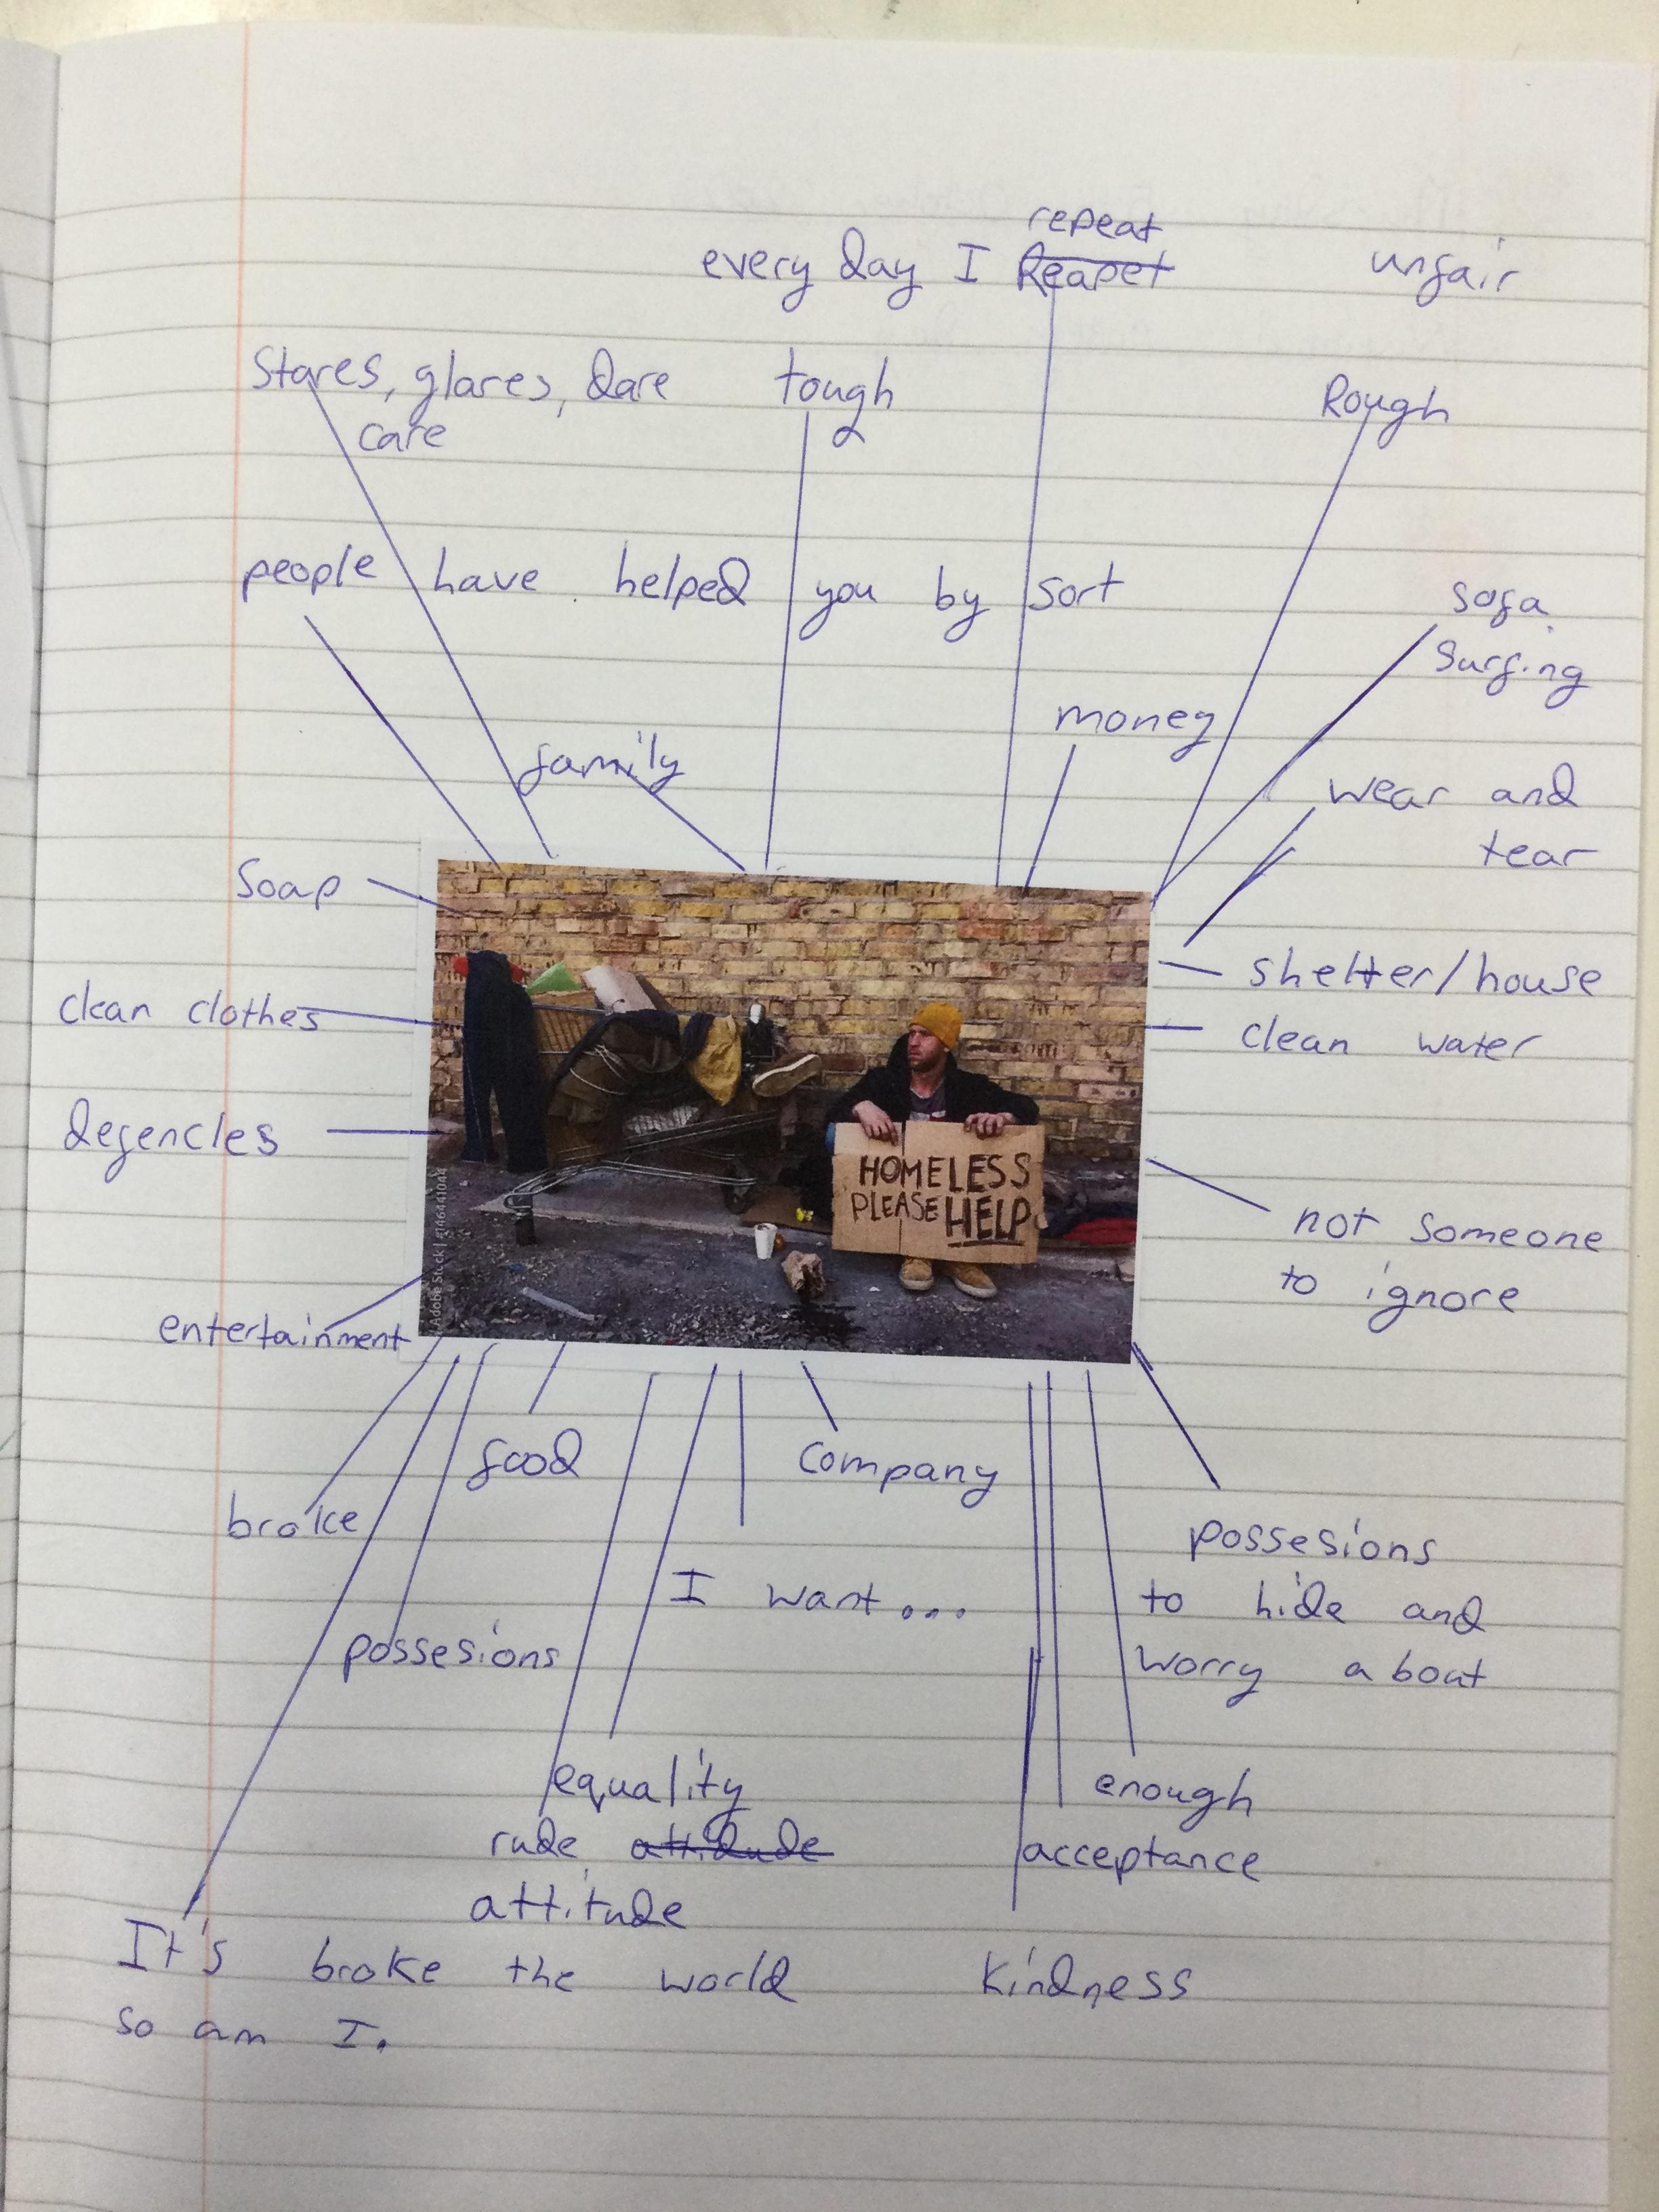 repeat
every day I Reapet unfair
Stares, glares, dare tough
care
Rough
people have helped you by sort
sofa
surfing
money
family
wear and
tear
Soap
shelter/house
clean clothes
clean water
degencles
HOMELESS
PLEASE HELP
not someone
to ignore
entertainment
Adobe Stock | #146441044
food
company
broke
possesions
to hide and
worry about
I want...
possesions
equality
enough
rude attidude
acceptance
attitude
It's broke the world
so am I.
kindness